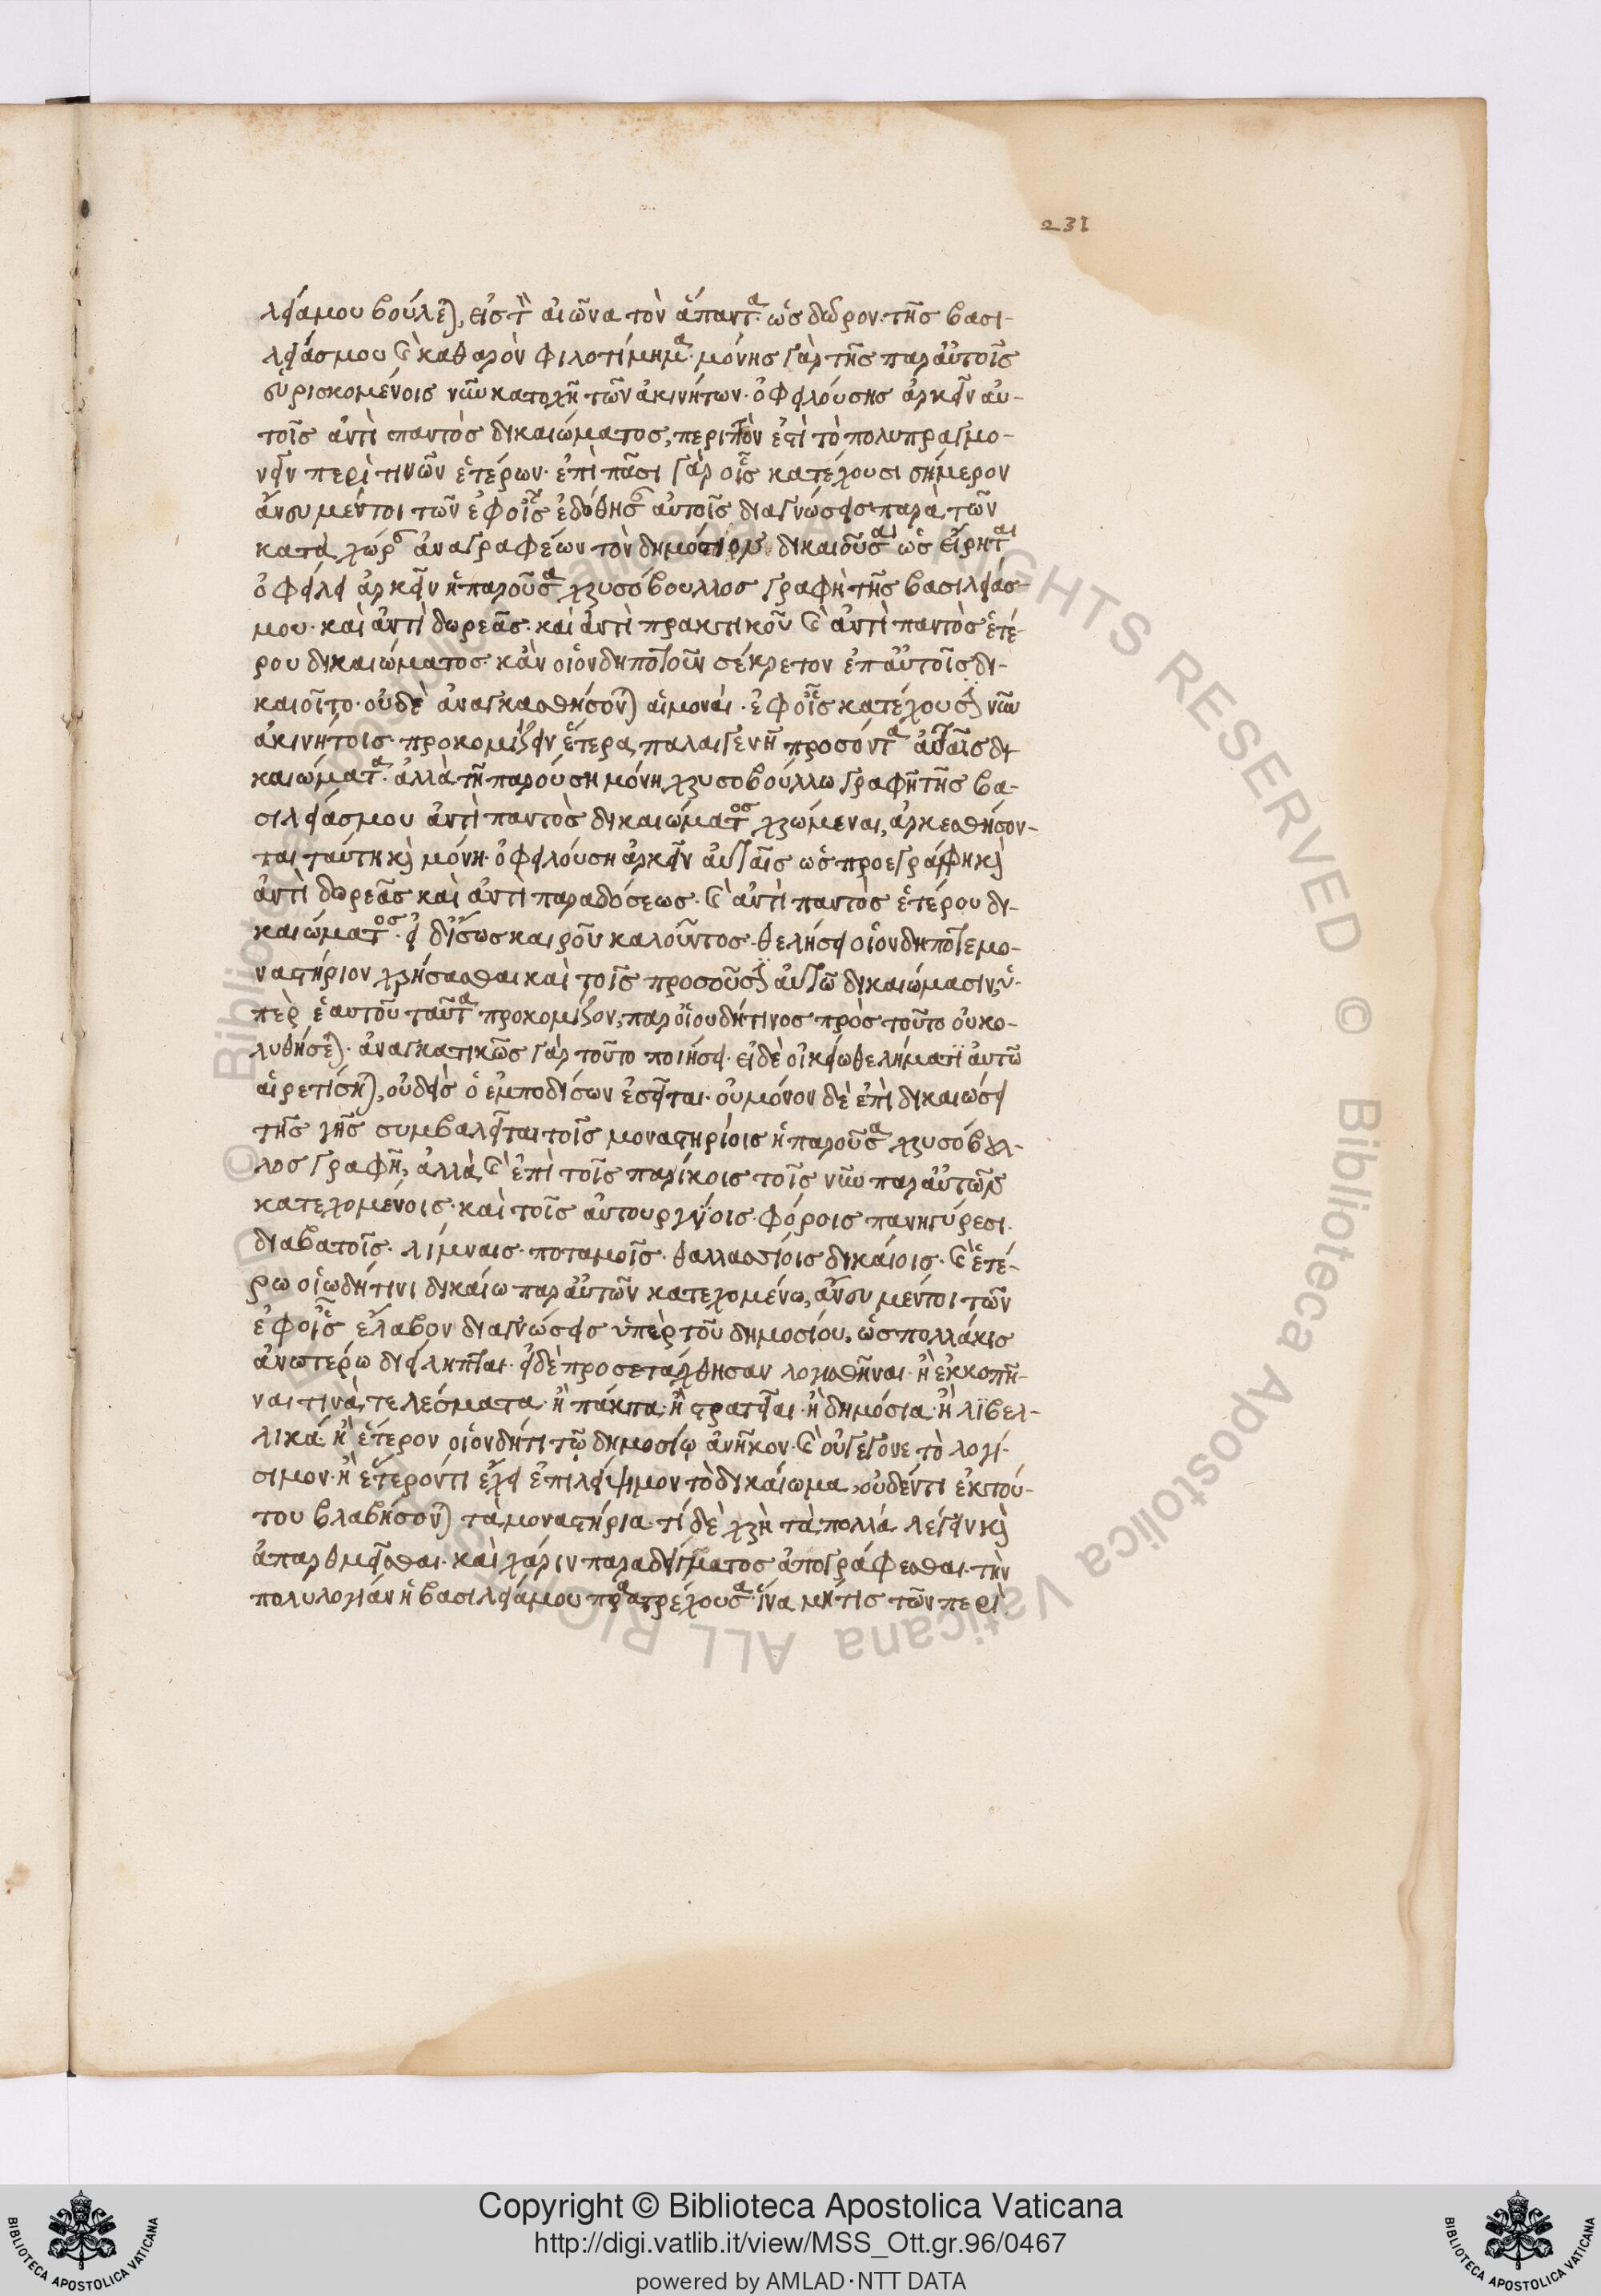 231
λεία μου βούλεται, εἰς τὸν αἰῶνα τὸν ἅπαντα. ὡς δῶρον τῆς βασι-
λείας μου καὶ καθαρὸν φιλοτίμημα. μόνης γὰρ τῆς παρ' αὐτοῖς
εὑρισκομένοις νῦν κατοχῆ τῶν ἀκινήτων. ὀφειλούσης ἀρκεῖν αὐ-
τοῖς ἀντὶ παντὸς δικαιώματος, περιττὸν ἐστὶ τὸ πολυπραγμο-
νεῖν περὶ τινῶν ἑτέρων. ἐπὶ πᾶσι γὰρ οἷς κατέχουσι σήμερον
ἄνευ μέντοι τῶν ἐφ' οἷς ἐδόθησαν αὐτοῖς διαγνώσεις παρὰ τῶν
κατὰ χώραν ἀναγραφέων τὸν δημόσιον δικαιοῦσαι ὡς εἴρηται
ὀφείλει ἀρκεῖν ἡ παροῦσα χρυσόβουλλος γραφὴ τῆς βασιλείας
μου. καὶ ἀντὶ δωρεᾶς. καὶ ἀντὶ πρακτικοῦ καὶ ἀντὶ παντὸς ἑτέ-
ρου δικαιώματος. κἂν οἱονδηποτοῦν σέκρετον ἐπ' αὐτοῖς δι-
καιοῖτο. οὐδὲ ἀναγκασθήσονται αἱ μοναὶ. ἐφ' οἷς κατέχουσι νῦν
ἀκινήτοις. προκομίζειν ἕτερα παλαιγενῆ προσόντα αὐταῖς δι-
καιώματα. ἀλλὰ τῆ παρούση μόνη χρυσοβούλλω γραφῆ τῆς βα-
σιλείας μου ἀντὶ παντὸς δικαιώματος χρώμεναι, ἀρκεσθήσον-
ται ταύτη καὶ μόνη. ὀφειλούση ἀρκεῖν αὐταῖς ὡς προεγράφη καὶ
ἀντὶ δωρεᾶς καὶ ἀντὶ παραδόσεως. καὶ ἀντὶ παντὸς ἑτέρου δι-
καιώματος. εἰ δ' ἴσως καιροῦ καλοῦντος. θελήσει οἱονδήποτε μο-
ναστήριον χρήσασθαι καὶ τοῖς προσοῦσι αὐτῶ δικαιώμασιν, ὑ-
πὲρ ἑαυτοῦ ταῦτα προκομίζον, παρ' οἱουδήτινος πρὸς τοῦτο οὐ κο-
λυθήσεται. ἀναγκατικῶς γὰρ τοῦτο ποιήσει. εἰ δὲ οἰκείω θελήματι αὐτῶ
αἱρετίσηται, οὐδεὶς ὁ ἐμποδίσων ἐσεῖται. οὐ μόνον δὲ ἐπὶ δικαιώσει
τῆς γῆς συμβαλεῖται τοῖς μοναστηρίοις ἡ παροῦσα χρυσόβουλ-
λος γραφῆ, ἀλλὰ καὶ ἐπὶ τοῖς παρίκοις τοῖς νῦν παρ' αὐτῶν
κατεχομένοις. καὶ τοῖς αὐτουργίοις. φόροις πανηγύρεσι.
διαβατοῖς. λίμναις. ποταμοῖς. θαλλασσίοις δικαίοις. καὶ ἑτέ-
ρω οἱωδήτινι δικαίω παρ' αὐτῶν κατεχομένω, ἄνευ μέντοι τῶν
ἐφ' οἷς ἔλαβον διαγνώσεις ὑπὲρ τοῦ δημοσίου, ὡς πολλάκις
ἀνωτέρω διείληπται. εἰ δὲ προσετάχθησαν λογισθῆναι. ἢ ἐκκοπῆ-
ναι τινὰ τελέσματα. ἢ πάκτα. ἢ στρατεῖαι. ἢ δημόσια. ἢ λιβελ-
λικά. ἢ ἕτερον οἱονδήτι τῷ δημοσίῳ ἀνῆκον. καὶ οὐ γέγονε τὸ λογί-
σιμον. ἢ ἕτερόν τι ἔχει ἐπιλείψιμον τὸ δικαίωμα, οὐδέν τι ἐκ τού-
του βλαβήσονται τὰ μοναστήρια. τί δὲ χρὴ τὰ πολλὰ λέγειν καὶ
ἀπαριθμεῖσθαι. καὶ χάριν παραδείγματος ἀπογράφεσθαι. τὴν
πολυλογίαν ἡ βασιλεία μου παρατρέχουσα. ἵνα μήτις τῶν περὶ
Copyright © Biblioteca Apostolica Vaticana
http://digi.vatlib.it/view/MSS_Ott.gr.96/0467
powered by AMLAD·NTT DATA